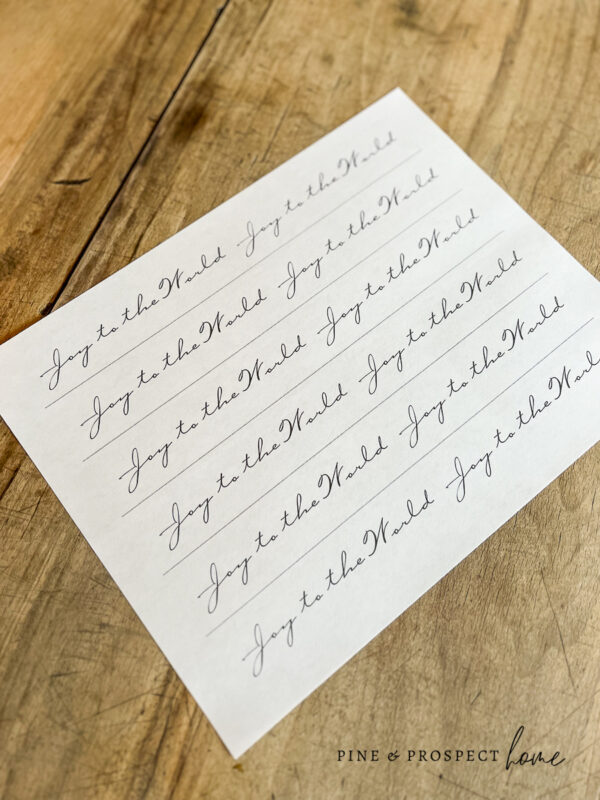 Joy to the World Joy to the World
Joy to the World Joy to the World
Joy to the World Joy to the World
Joy to the World Joy to the World
Joy to the World Joy to the World
Joy to the World Joy to the Worl
PINE & PROSPECT home